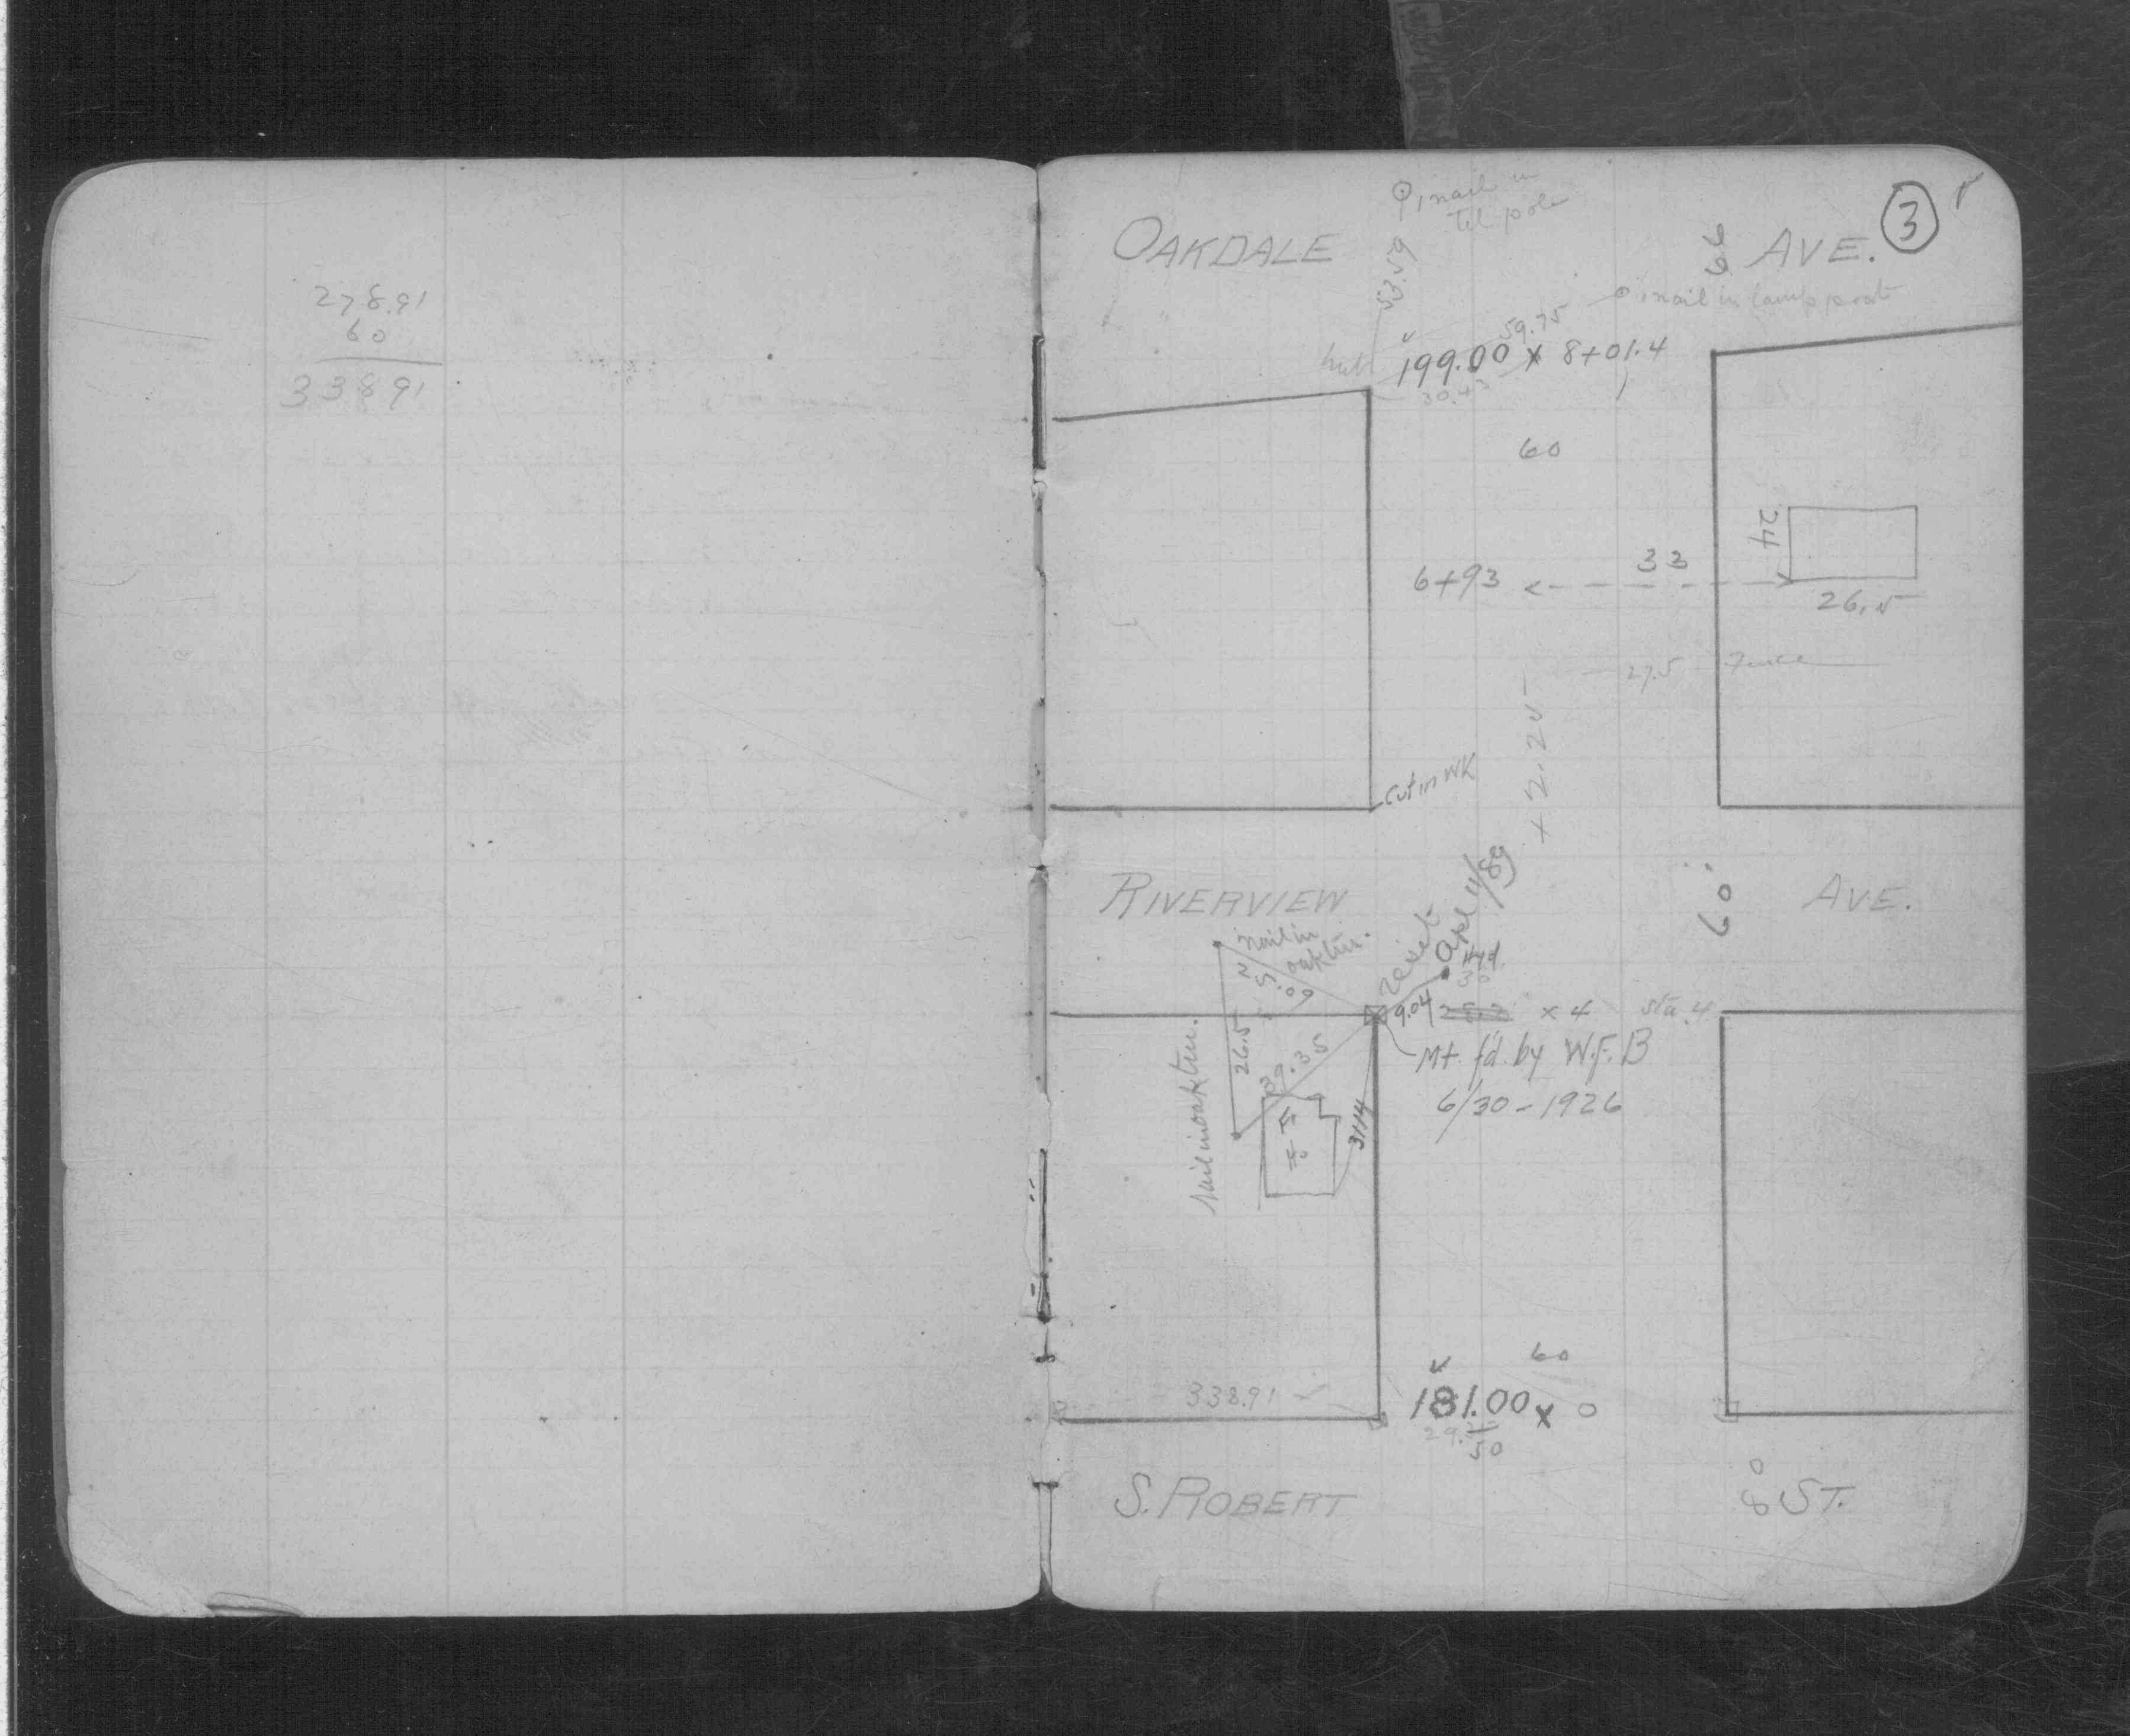 278.91
60
338 91
3
nail in
tel pole
OAKDALE
66
AVE.
53.59
nail in lamp post
59.75
hub
199.00 x 8+01.4
30.43
60
24
33
6+93
26.5
27.5 Fence
+2.25
cut in WK
RIVERVIEW
60
AVE.
nail in
oak tree.
reset
Apl 4/89
Hyd.
30
9.04
x 4
sta. 4
Mt. fd. by W.F.B
6/30-1926
26.5
39.35
nail in oak tree.
31.14
60
338.91
181.00 x 0
50
S. ROBERT
80
ST.